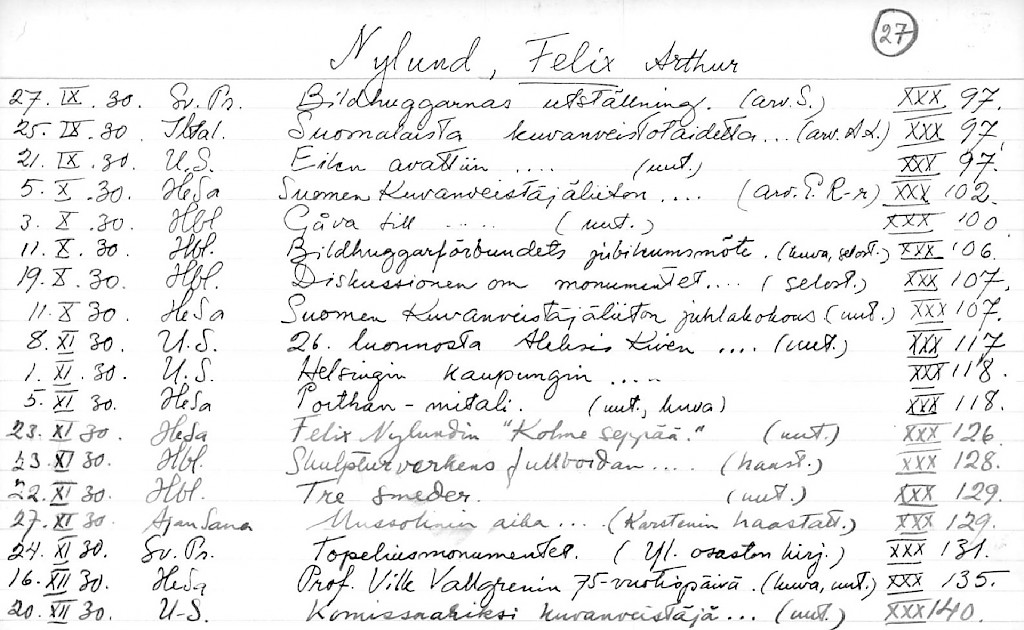 27
Nylund, Felix Arthur
27. IX. 30. Sv. Pr. Bildhuggarnas utställning. (arv. S.) XXX 97.
25. IX. 30 Iltal. Suomalaista kuvanveistotaidetta... (arv. A.L.) XXX 97.
21. IX. 30. U.S. Eilen avattiin .... (uut.) XXX 97.
5. X. 30. HeSa Suomen Kuvanveistäjäliiton .... (arv. E. R-r) XXX 102.
3. X. 30. Hbl Gåva till ..... (uut.) XXX 100
11. X. 30. Hbl. Bildhuggarförbundets jubileumsmöte. (kuva, selost.) XXX 106.
19. X. 30. Hbl. Diskussionen om monumentet.... (selost.) XXX 107.
11. X 30. HeSa Suomen Kuvanveistäjäliiton juhlakokous (uut.) XXX 107.
8. XI 30. U.S. 26. luonnosta Aleksis Kiven .... (uut.) XXX 117
1. XI. 30. U.S. Helsingin kaupungin ..... XXX 118.
5. XI 30. HeSa Porthan-mitali. (uut., kuva) XXX 118.
23. XI 30. HeSa Felix Nylundin "Kolme seppää." (uut.) XXX 126.
23. XI 30. Hbl. Skulpturverkens fullbordan .... (haast.) XXX 128.
22. XI 30. Hbl. Tre smeder. (uut.) XXX 129.
27. XI 30. Ajan Sana Mussolinin aika ... (Karstenin haastatt.) XXX 129.
24. XI 30. Sv. Pr. Topeliusmonumentet. (Yl. osaston kirj.) XXX 131.
16. XII 30. HeSa Prof. Ville Vallgrenin 75-vuotispäivä. (kuva, uut.) XXX 135.
20. XII 30. U-S. Komissaariksi kuvanveistäjä ... (uut.) XXX 140.